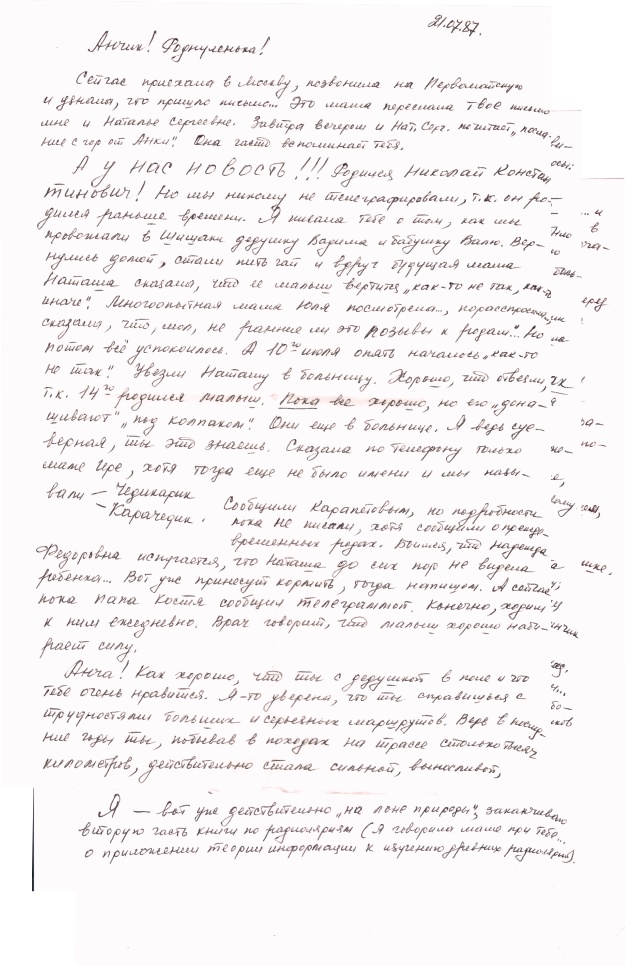 21.07.87.
Анчик! Роднуленька!
Сейчас приехала в Москву, позвонила на Первомайскую
и узнала, что пришло письмо... Это мама переслала твоё письмо
мне и Наталье Сергеевне. Завтра вечером и Нат. Серг. почитает „посла-
ние с гор от Анки". Она часто вспоминает тебя.
А у нас новость!!! Родился Николай Констан
тинович! Но мы никому не телеграфировали, т.к. он ро-
дился раньше времени. Я писала тебе о том, как мы
провожали в Шишаки дедушку Вадима и бабушку Валю. Вер-
нулись домой, стали пить чай и вдруг будущая мама
Наташа сказала, что её малыш вертится „как-то не так, как-то
иначе". Многоопытная мама Юля посмотрела..., порасспросила,
сказала, что, мол, не ранние ли это позывы к родам"... Но
потом всё успокоилось. А 10го июля опять началось „как-то
не так". Увезли Наташу в больницу. Хорошо, что отвезли,
т.к. 14го родился малыш. Пока все хорошо, но его „дона-
шивают" „под колпаком". Они еще в больнице. Я ведь суе-
верная, ты это знаешь. Сказала по телефону только
маме Ире, хотя тогда еще не было имени и мы назы-
вали – Чедикарик
– Карачедик.
Сообщили Карапетовым, но подробности
пока не писали, хотя сообщили о прежде-
временных родах. Боимся, что Надежда
Федоровна испугается, что Наташа до сих пор не видела
ребенка... Вот уже принесут кормить, тогда напишем. А сейчас
пока папа Костя сообщил телеграммой. Конечно, ходим
к ним ежедневно. Врач говорит, что малыш хорошо наби-
рает силу.
Анча! Как хорошо, что ты с дедушкой в поле и что
тебе очень нравится. Я-то уверена, что ты справишься с
трудностями больших и серьезных маршрутов. Ведь в послед-
ние годы ты, побывав в походах на трассе столько тысяч
километров, действительно стала сильной, выносливой,
Я – вот уже действительно „на лоне природы", заканчиваю
вторую часть книги по радиоляриям (я говорила маме при тебе...
о приложении теории информации к изучению древних радиолярий).